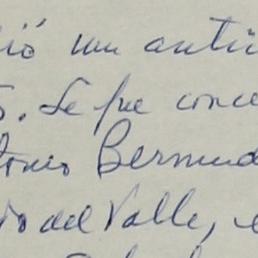 ió un anti
. Se fue conce
tonio Bermud
to del Valle, e